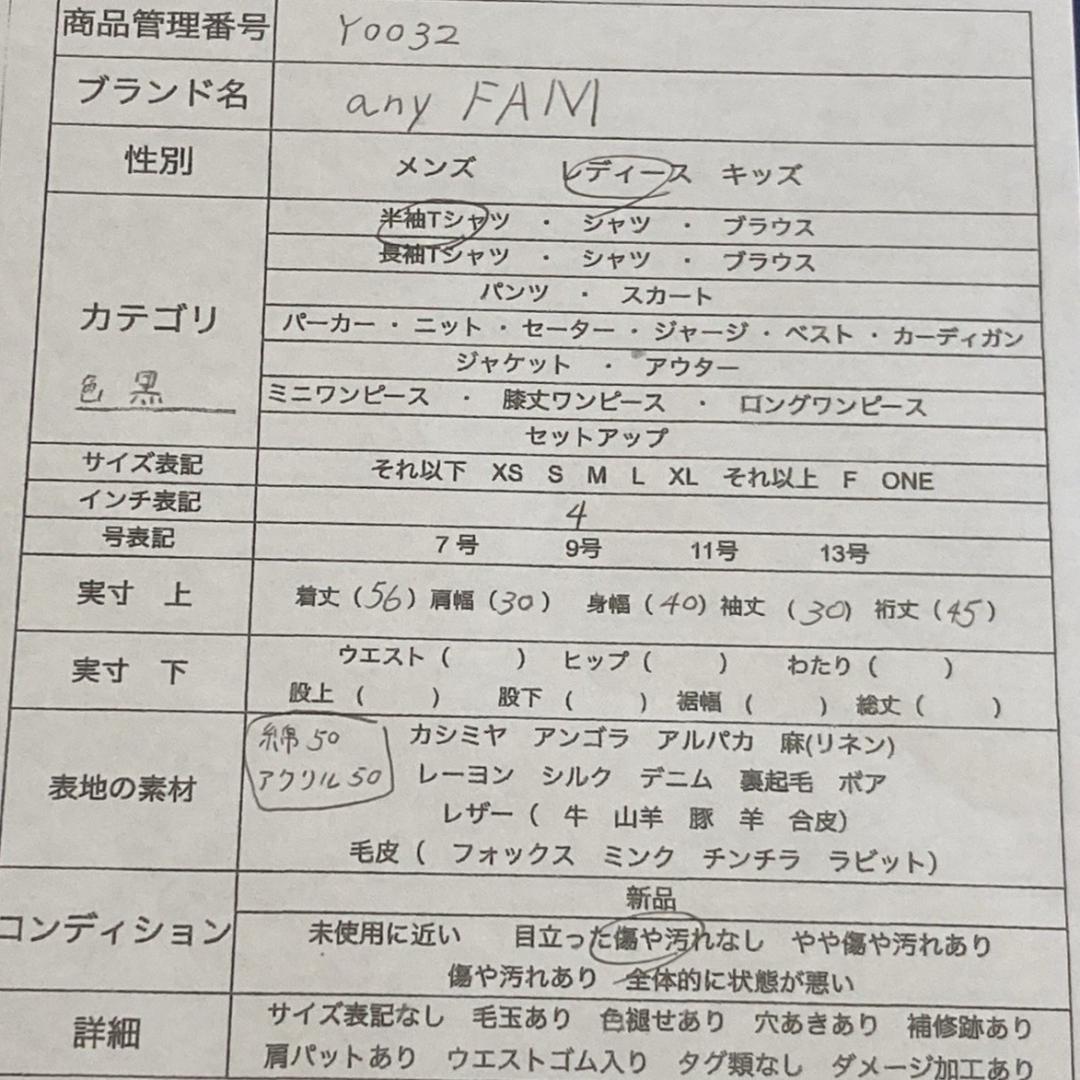 商品管理番号 Y0032
ブランド名 any FAM
性別 メンズ レディース キッズ
半袖Tシャツ ・ シャツ ・ ブラウス
長袖Tシャツ ・ シャツ ・ ブラウス
パンツ ・ スカート
カテゴリ パーカー ・ ニット ・ セーター ・ ジャージ ・ ベスト ・ カーディガン
ジャケット ・ アウター
色 黒 ミニワンピース ・ 膝丈ワンピース ・ ロングワンピース
セットアップ
サイズ表記 それ以下 XS S M L XL それ以上 F ONE
インチ表記 4
号表記 7号 9号 11号 13号
実寸 上 着丈(56) 肩幅(30) 身幅(40) 袖丈(30) 裄丈(45)
実寸 下 ウエスト( ) ヒップ( ) わたり( )
股上( ) 股下( ) 裾幅( ) 総丈( )
綿50 カシミヤ アンゴラ アルパカ 麻(リネン)
表地の素材 アクリル50 レーヨン シルク デニム 裏起毛 ボア
レザー( 牛 山羊 豚 羊 合皮)
毛皮( フォックス ミンク チンチラ ラビット)
新品
コンディション 未使用に近い 目立った傷や汚れなし やや傷や汚れあり
傷や汚れあり 全体的に状態が悪い
詳細 サイズ表記なし 毛玉あり 色褪せあり 穴あきあり 補修跡あり
肩パットあり ウエストゴム入り タグ類なし ダメージ加工あり